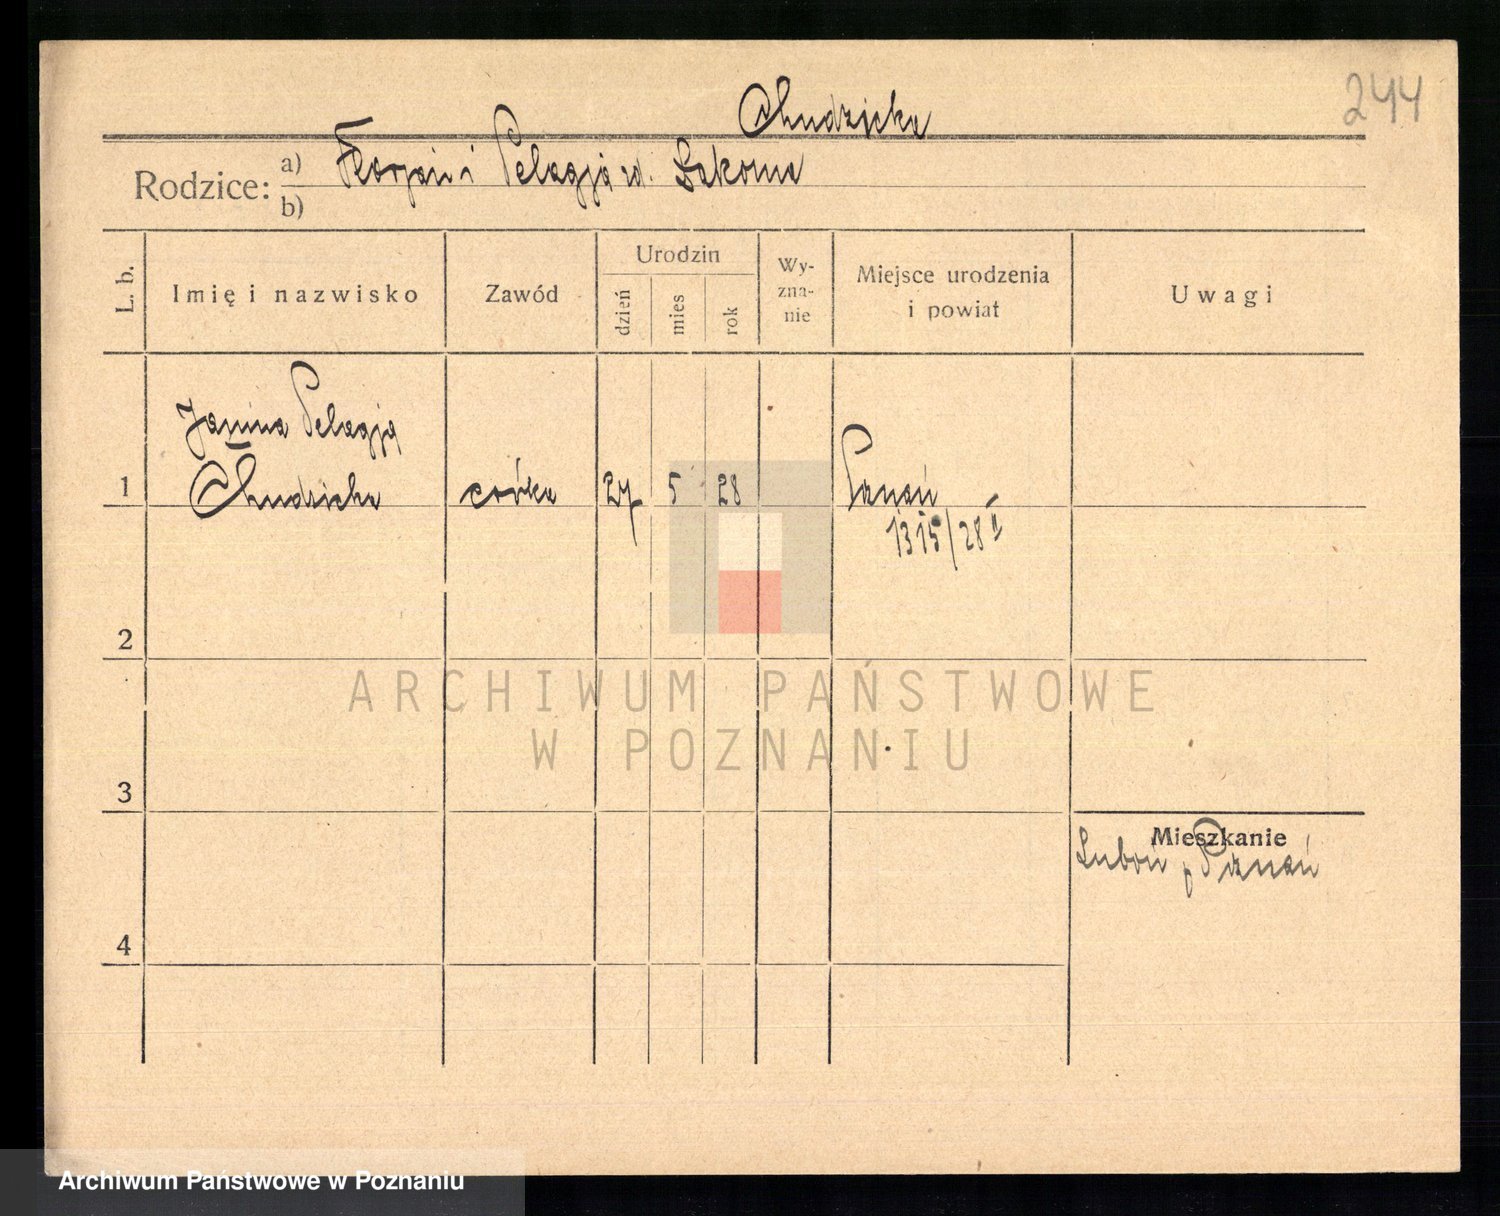 244
Chudzicka
Rodzice: a) Florjan i Pelagja zd. Szkoma
b)
L. b.
Imię i nazwisko
Zawód
Urodzin
dzień
mies
rok
Wy-
zna-
nie
Miejsce urodzenia
i powiat
Uwagi
Janina Pelagja
1 Chudzicka córka 27 5 28 Poznań
1315/28 II
2
ARCHIWUM PAŃSTWOWE
W POZNANIU
3
Mieszkanie
Luboń p Poznań
4
Archiwum Państwowe w Poznaniu